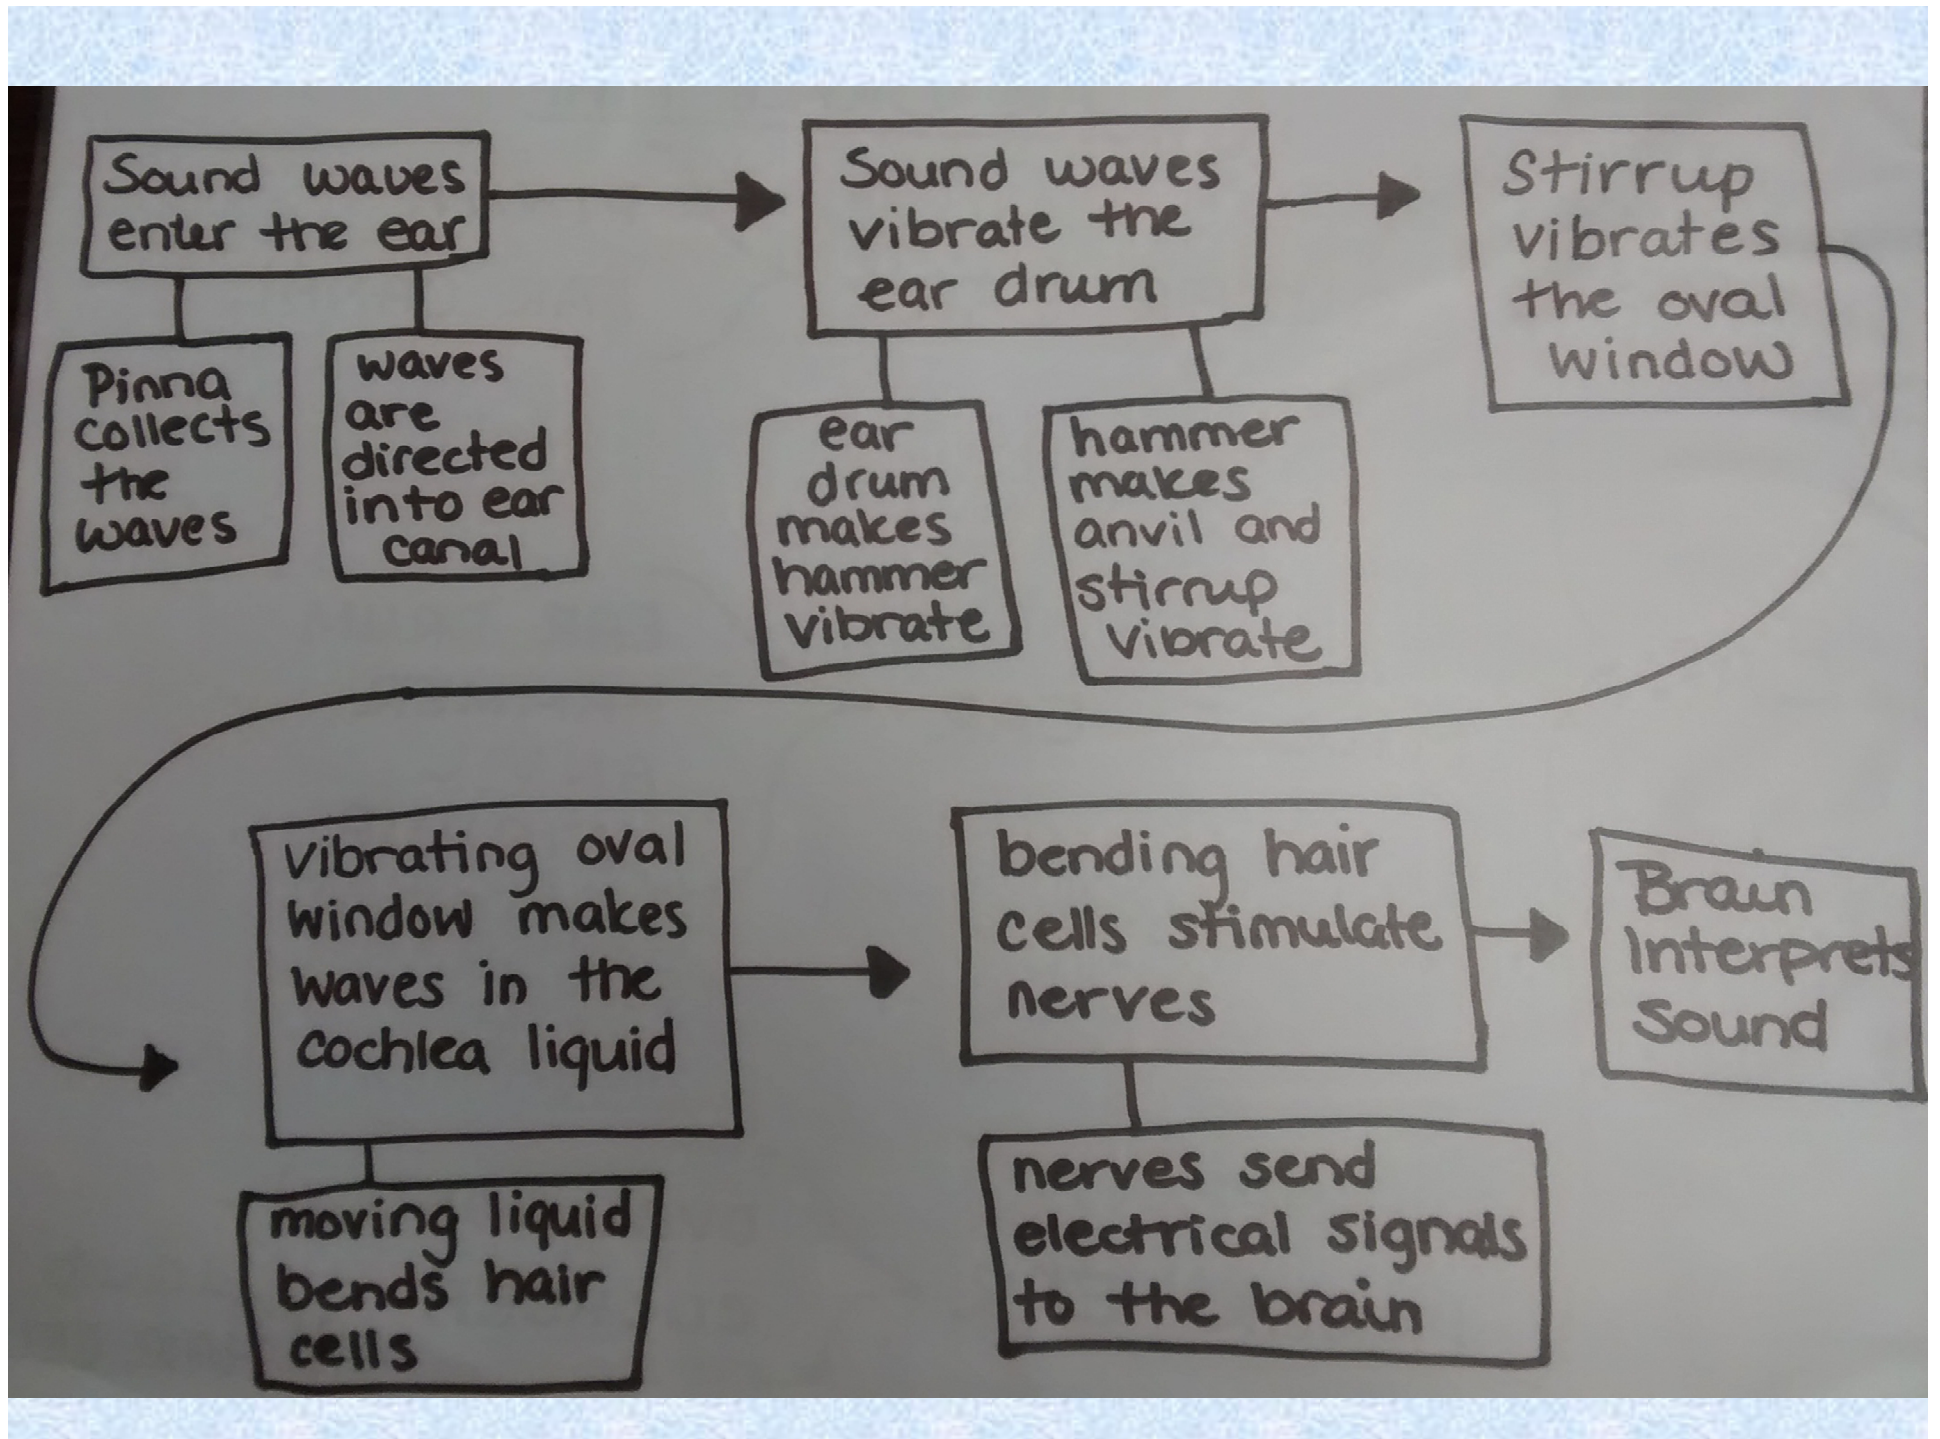 Sound waves
enter the ear
Pinna
collects
the
waves
waves
are
directed
into ear
canal
Sound waves
vibrate the
ear drum
ear
drum
makes
hammer
vibrate
hammer
makes
anvil and
stirrup
vibrate
Stirrup
vibrates
the oval
window
vibrating oval
window makes
waves in the
cochlea liquid
moving liquid
bends hair
cells
bending hair
cells stimulate
nerves
nerves send
electrical signals
to the brain
Brain
Interprets
Sound